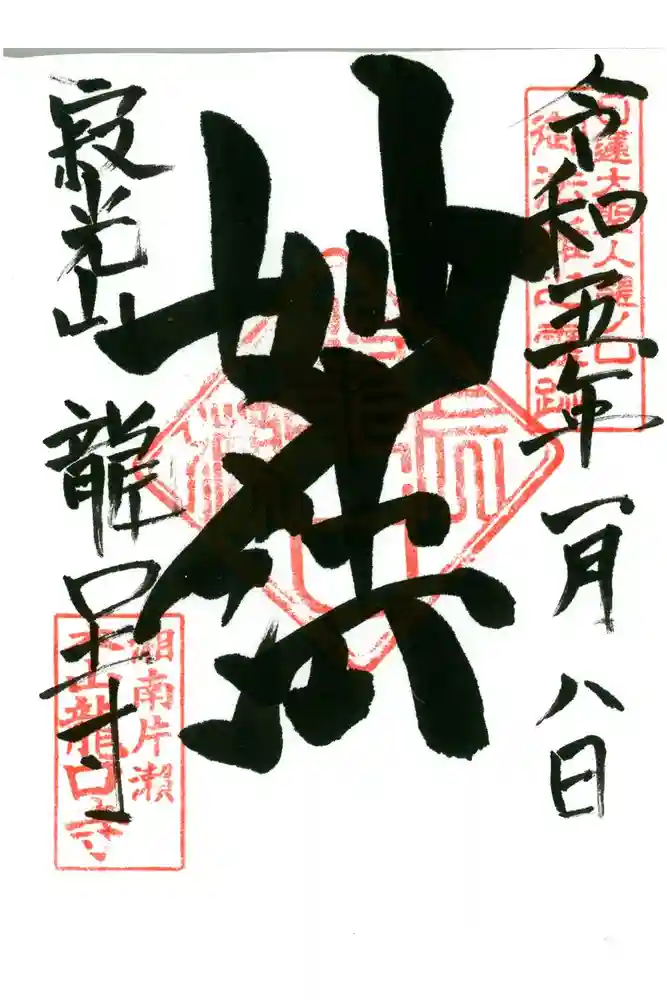 日蓮大聖人龍ノ口
御法難之霊跡
令和五年一月八日
妙法
寂光山 龍口寺
湘南片瀨
本山龍口寺